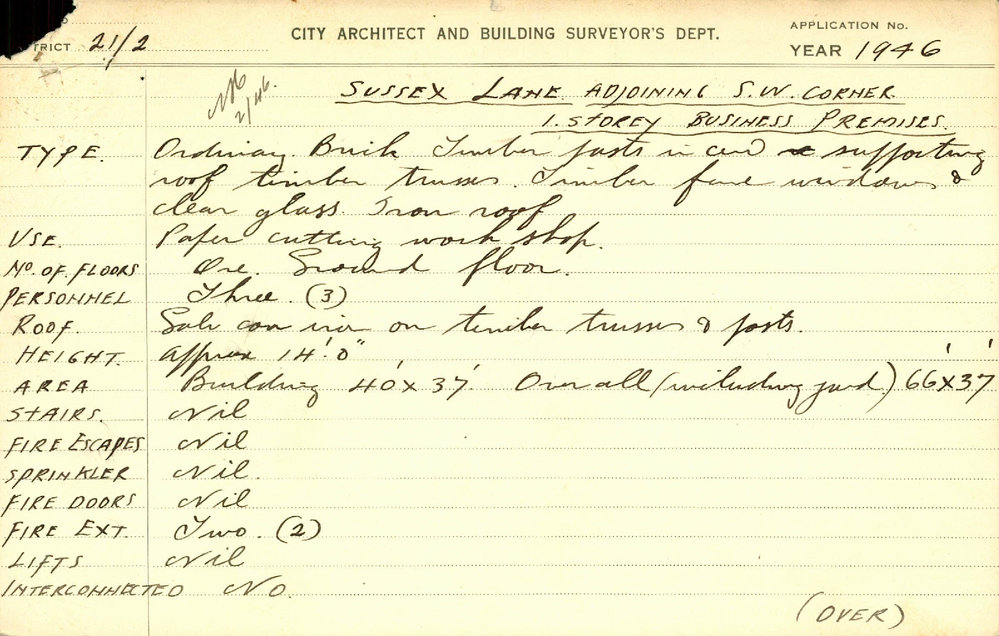 TRICT 21/2
CITY ARCHITECT AND BUILDING SURVEYOR'S DEPT.
APPLICATION No.
YEAR 1946
2/46.
SUSSEX LANE. ADJOINING S.W. CORNER
1. STOREY BUSINESS PREMISES.
TYPE. Ordinary Brick Timber posts in supporting
roof timber trusses. Timber frame windows &
clear glass. Iron roof
USE. Paper cutting work shop.
No. OF. FLOORS One. Ground floor.
PERSONNEL Three. (3)
ROOF. Galv corr iron on timber trusses & posts.
HEIGHT. Approx 14'.0"
AREA Building 40' x 37' Over all (including yard) 66' x 37'
STAIRS. Nil
FIRE ESCAPES Nil
SPRINKLER Nil.
FIRE DOORS Nil
FIRE EXT. Two. (2)
LIFTS Nil
INTERCONNECTED No.
(OVER)